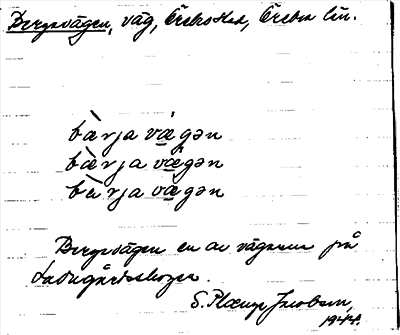 Bergsvägen, väg, Örebro stad, Örebro län.
bàrja vägən
bàrja vägən
bàrja vägən
Bergsvägen en av vägarna på
Ladugårdsskogen.
S. Plænge Jacobson,
1944.